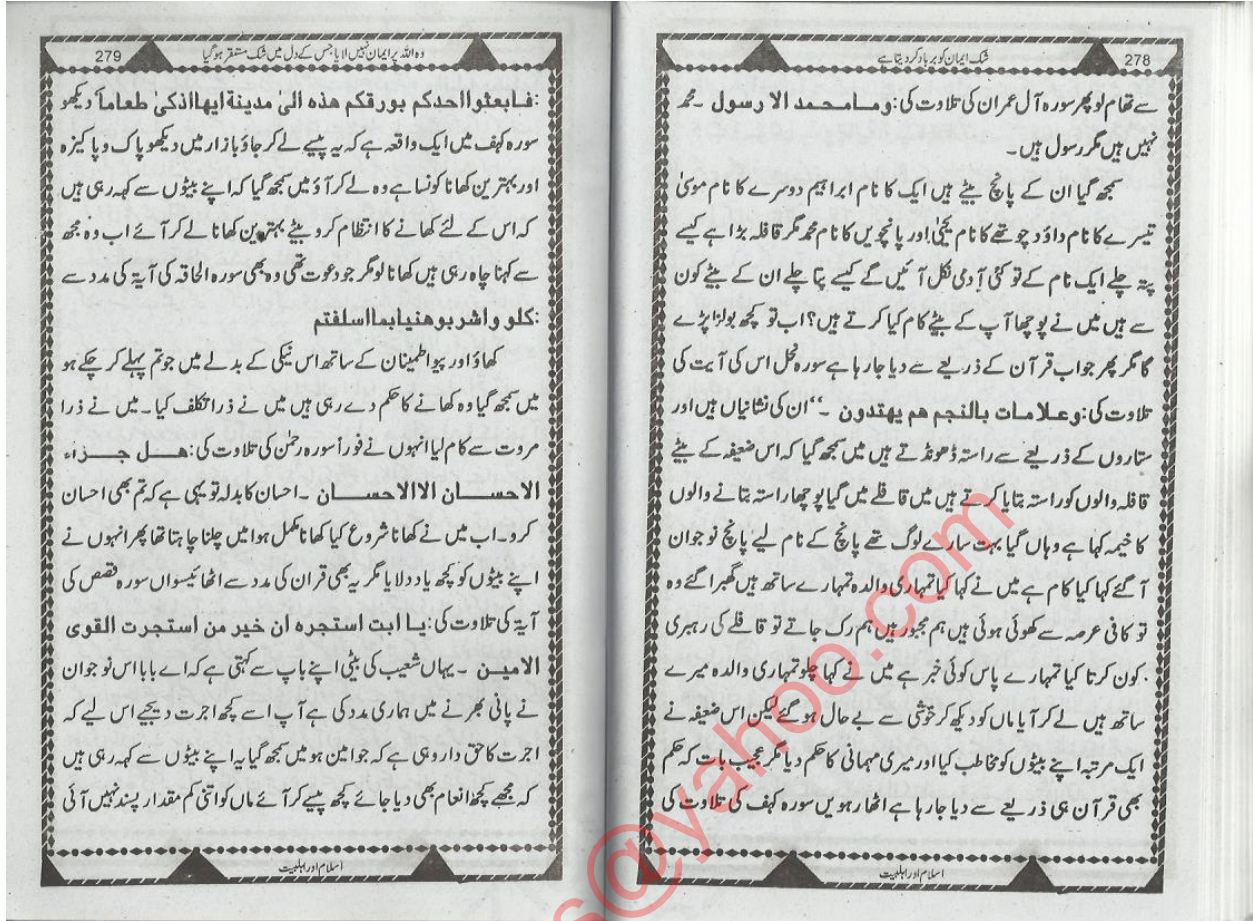 278
شک ایمان کو برباد کر دیتا ہے
سے تھام لو پھر سورہ آل عمران کی تلاوت کی: ومامحمد الا رسول ۔ محمد
نہیں ہیں مگر رسول ہیں۔
سمجھ گیا ان کے پانچ بیٹے ہیں ایک کا نام ابراہیم دوسرے کا نام موسیٰ
تیسرے کا نام داؤد چوتھے کا نام یحییٰ اور پانچویں کا نام محمد مگر قافلہ بڑا ہے کیسے
پتہ چلے ایک نام کے تو کئی آدمی نکل آئیں گے کیسے پتا چلے ان کے بیٹے کون
سے ہیں میں نے پوچھا آپ کے بیٹے کام کیا کرتے ہیں؟ اب تو کچھ بولنا پڑے
گا مگر پھر جواب قرآن کے ذریعے سے دیا جا رہا ہے سورہ نحل اس کی آیت کی
تلاوت کی: وعلامات بالنجم هم یهتدون ۔‘‘ ان کی نشانیاں ہیں اور
ستاروں کے ذریعے سے راستہ ڈھونڈتے ہیں میں سمجھ گیا کہ اس ضعیفہ کے بیٹے
قافلہ والوں کو راستہ بتایا کرتے ہیں میں قافلے میں گیا پوچھا راستہ بتانے والوں
کا خیمہ کہا ہے وہاں گیا بہت سارے لوگ تھے پانچ کے نام لیے پانچ نوجوان
آگئے کہا کیا کام ہے میں نے کہا کیا تمہاری والدہ تمہارے ساتھ ہیں گھبرا گئے وہ
تو کافی عرصہ سے کھوئی ہوئی ہیں ہم مجبور ہیں ہم رک جاتے تو قافلے کی رہبری
کون کرتا کیا تمہارے پاس کوئی خبر ہے میں نے کہا چلو تمہاری والدہ میرے
ساتھ ہیں لے کر آیا ماں کو دیکھ کر خوشی سے بے حال ہو گئے لیکن اس ضعیفہ نے
ایک مرتبہ اپنے بیٹوں کو مخاطب کیا اور میری مہمانی کا حکم دیا مگر عجیب بات کہ حکم
بھی قرآن ہی ذریعے سے دیا جا رہا ہے اٹھارھویں سورہ کہف کی تلاوت کی
اسلام اور اہلبیت
279
وہ اللہ پر ایمان نہیں لایا جس کے دل میں شک مستقر ہو گیا
:فابعثوااحدکم بورقکم هذه الیٰ مدینة ایهااذکیٰ طعاماً دیکھو
سورہ کہف میں ایک واقعہ ہے کہ یہ پیسے لے کر جاؤ بازار میں دیکھو پاک و پاکیزہ
اور بہترین کھانا کونسا ہے وہ لے کر آؤ میں سمجھ گیا کہ اپنے بیٹوں سے کہہ رہی ہیں
کہ اس کے لئے کھانے کا انتظام کرو بیٹے بہترین کھانا لے کر آئے اب وہ مجھ
سے کہنا چاہ رہی ہیں کھانا لو مگر جو دعوت تھی وہ بھی سورہ الحاقہ کی آیۃ کی مدد سے
:کلو واشربوهنیابمااسلفتم
کھاؤ اور پیو اطمینان کے ساتھ اس نیکی کے بدلے میں جو تم پہلے کر چکے ہو
میں سمجھ گیا وہ کھانے کا حکم دے رہی ہیں میں نے ذرا تکلف کیا۔ میں نے ذرا
مروت سے کام لیا انہوں نے فوراً سورہ رحمٰن کی تلاوت کی: هل جزاء
الاحسان الاالاحسان ۔ احسان کا بدلہ تو یہی ہے کہ تم بھی احسان
کرو۔ اب میں نے کھانا شروع کیا کھانا مکمل ہوا میں چلنا چاہتا تھا پھر انہوں نے
اپنے بیٹوں کو کچھ یاد دلایا مگر یہ بھی قرآن کی مدد سے اٹھائیسواں سورہ قصص کی
آیۃ کی تلاوت کی: یا ابت استجره ان خیر من استجرت القوی
الامین ۔ یہاں شعیب کی بیٹی اپنے باپ سے کہتی ہے کہ اے بابا اس نوجوان
نے پانی بھرنے میں ہماری مدد کی ہے آپ اسے کچھ اجرت دیجیے اس لیے کہ
اجرت کا حق دار وہی ہے کہ جو امین ہو میں سمجھ گیا یہ اپنے بیٹوں سے کہہ رہی ہیں
کہ مجھے کچھ انعام بھی دیا جائے کچھ پیسے کر آئے ماں کو اتنی کم مقدار پسند نہیں آئی
اسلام اور اہلبیت
s@yahoo.com